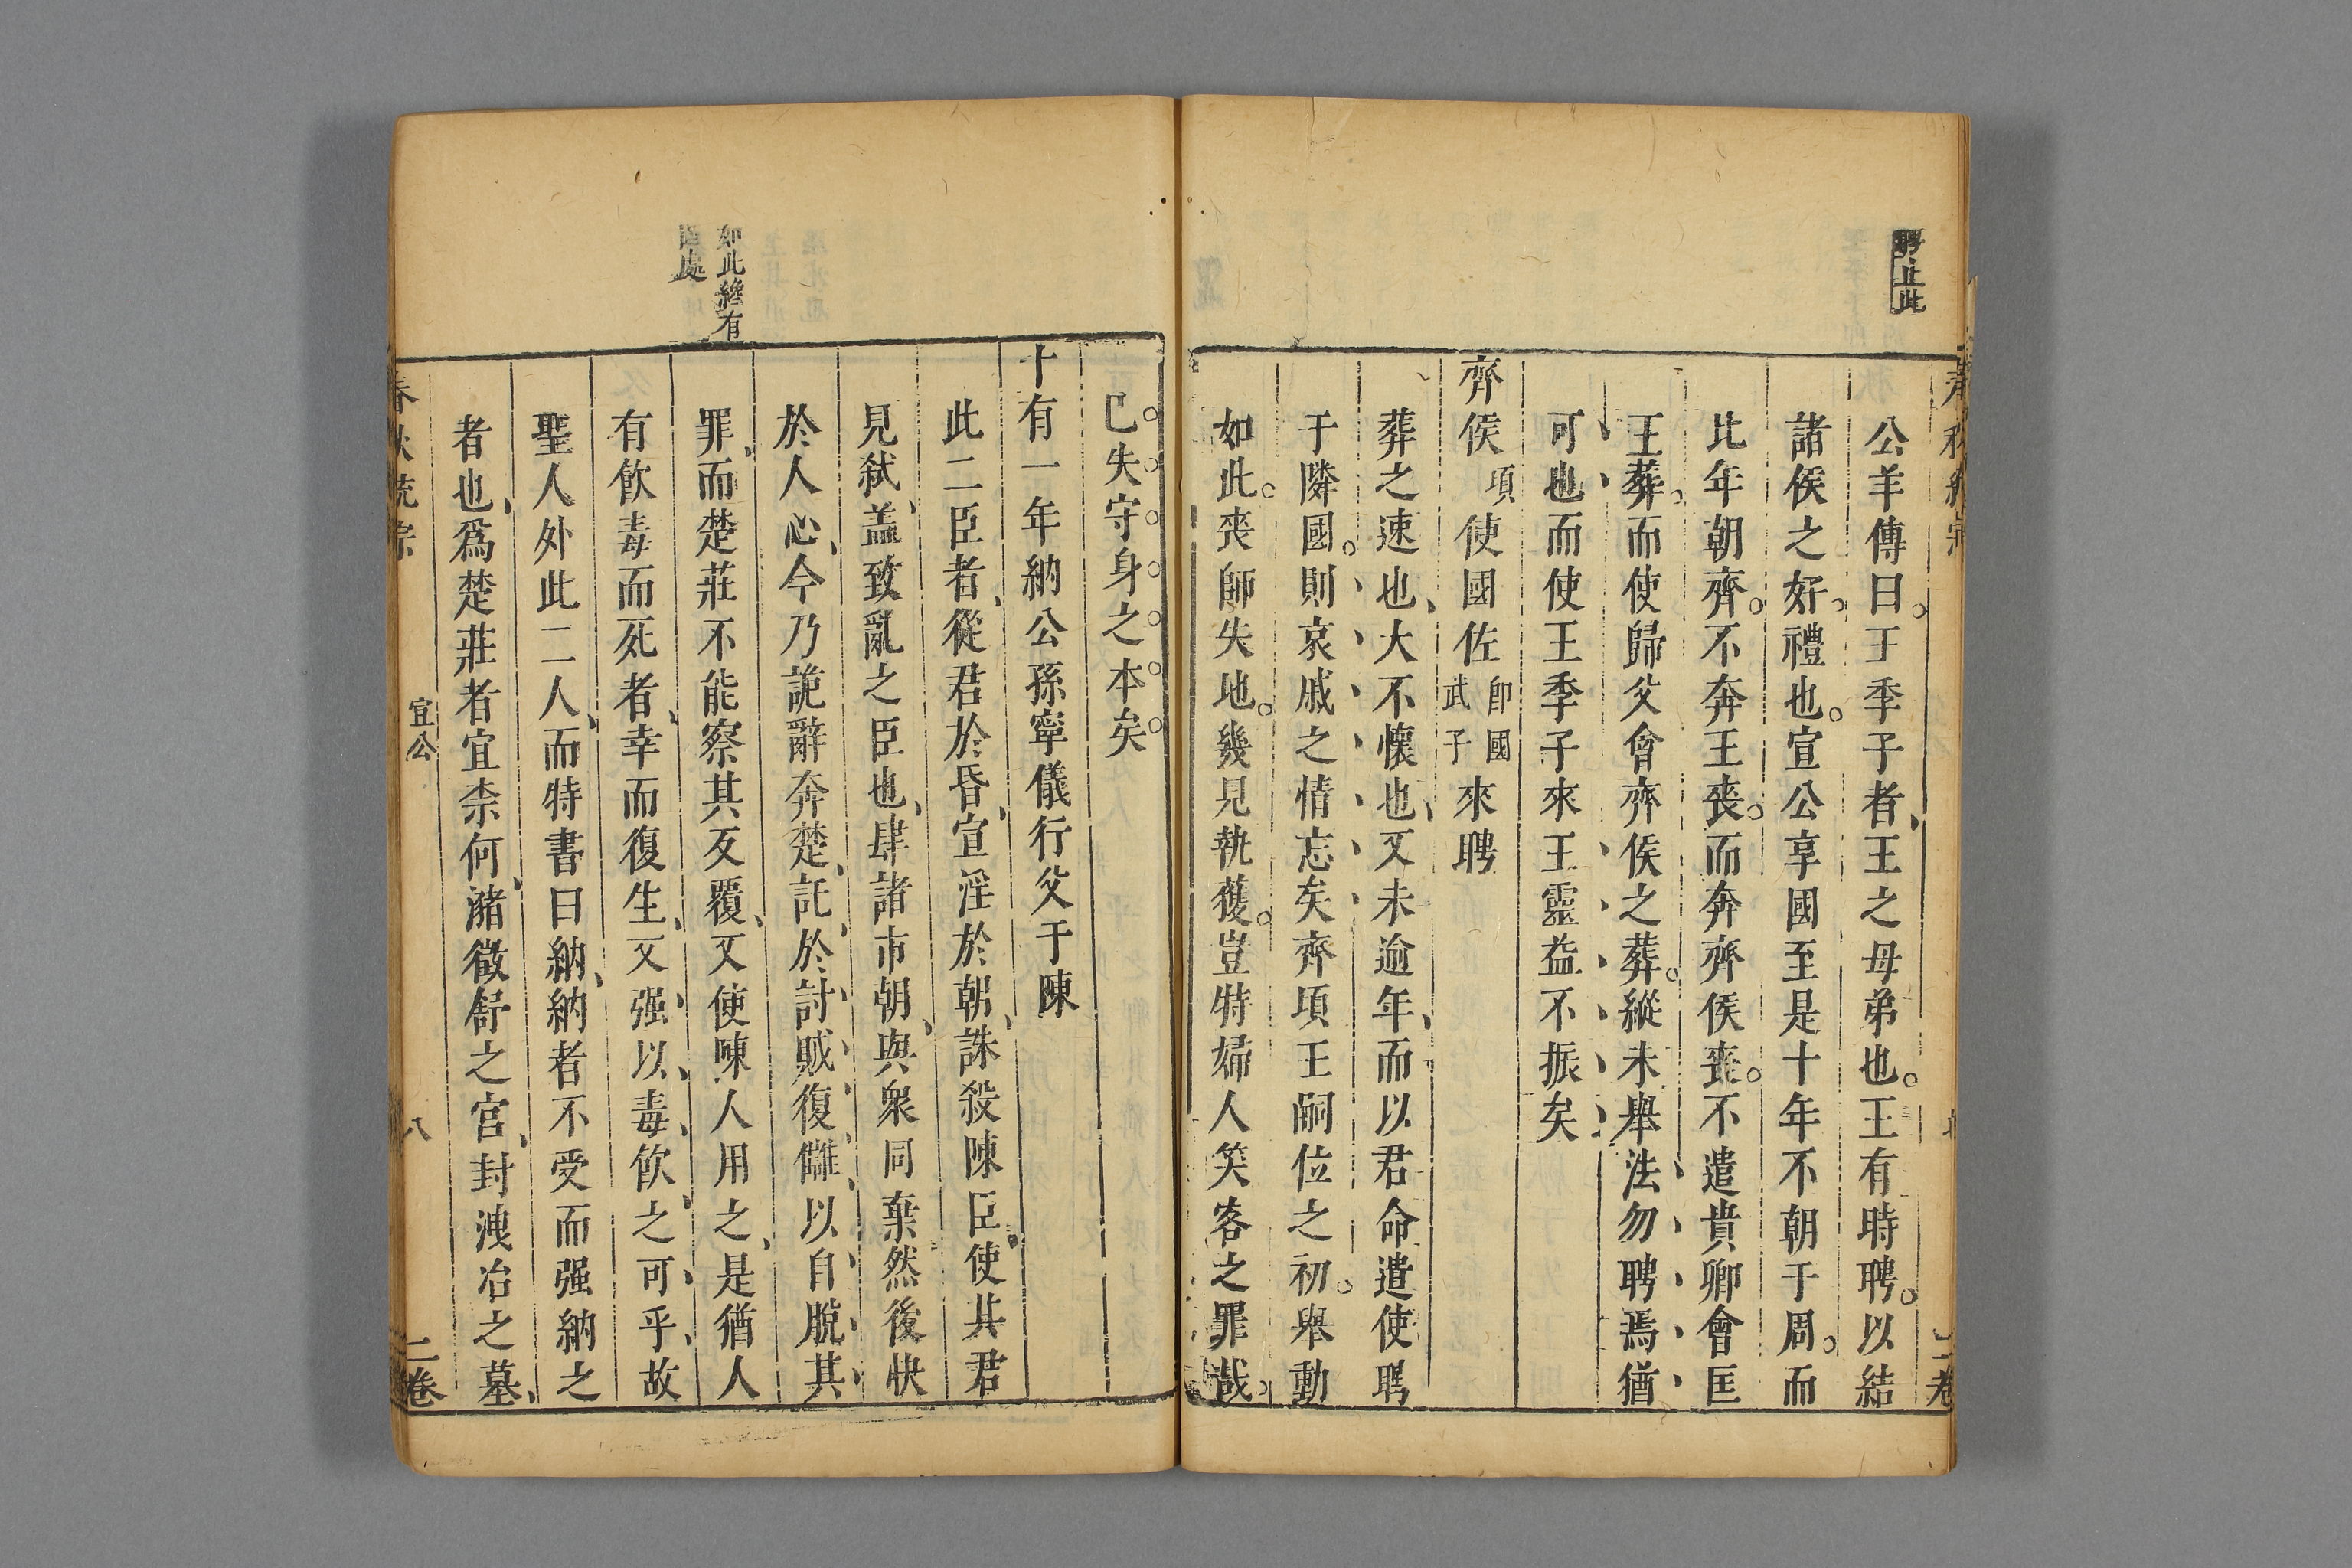 聘止此
公羊傳曰王季子者王之母弟也王有時聘以結
諸侯之好禮也宣公享國至是十年不朝于周而
比年朝齊不奔王喪而奔齊侯喪不遣貴卿會匡
王葬而使歸父會齊侯之葬縱未舉法勿聘焉猶
可也而使王季子來王靈益不振矣
齊侯項使國佐卽國武子來聘
葬之速也大不懷也又未逾年而以君命遣使聘
于隣國則哀戚之情忘矣齊頃王嗣位之初舉動
如此喪師失地幾見執獲豈特婦人笑客之罪哉
已失守身之本矣
十有一年納公孫寧儀行父于陳
此二臣者從君於昏宣淫於朝誅殺陳臣使其君
見弑蓋致亂之臣也肆諸市朝與衆同棄然後快
於人心今乃詭辭奔楚託於討賊復讎以自脫其
如此纔有
處
罪而楚莊不能察其反覆又使陳人用之是猶人
有飮毒而死者幸而復生又强以毒飮之可乎故
聖人外此二人而特書曰納納者不受而强納之
者也爲楚莊者宜柰何瀦徵舒之宮封洩冶之墓
春秋統宗
宣公
八
二卷